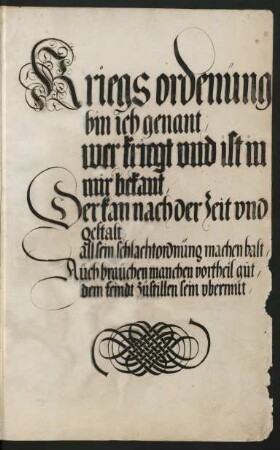 Kriegs ordenüng
bin ich genant /
wer kriegt vnd ist in
mir bekant /
Der kan nach der Zeit vnd
gestalt
all sein schlachtordnüng machen balt /
Aüch braüchen manchen vortheil güt /
dem feindt züstillen sein vbermüt /